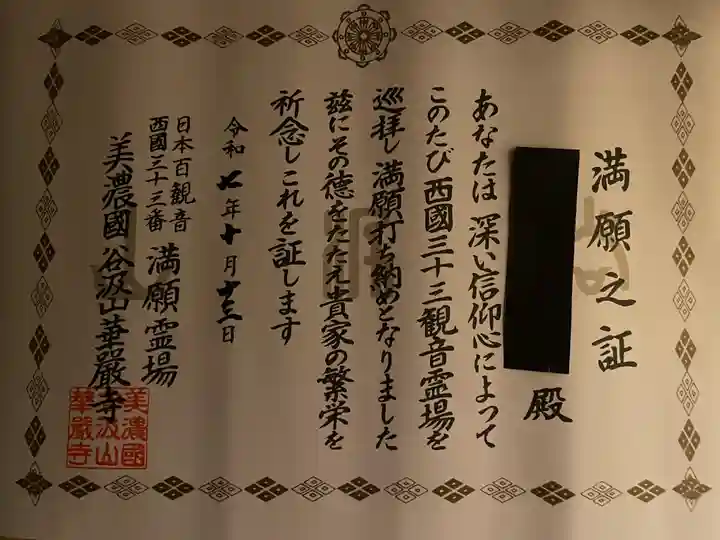 満願之証
殿
あなたは 深い信仰心によって
このたび 西國三十三観音霊場を
巡拝し 満願打ち納めとなりました
茲にその徳をたたえ貴家の繁栄を
祈念し これを証します
令和七年十月十三日
日本百観音
西國三十三番
満願霊場
美濃國 谷汲山 華嚴寺
美濃國
谷汲山
華嚴寺